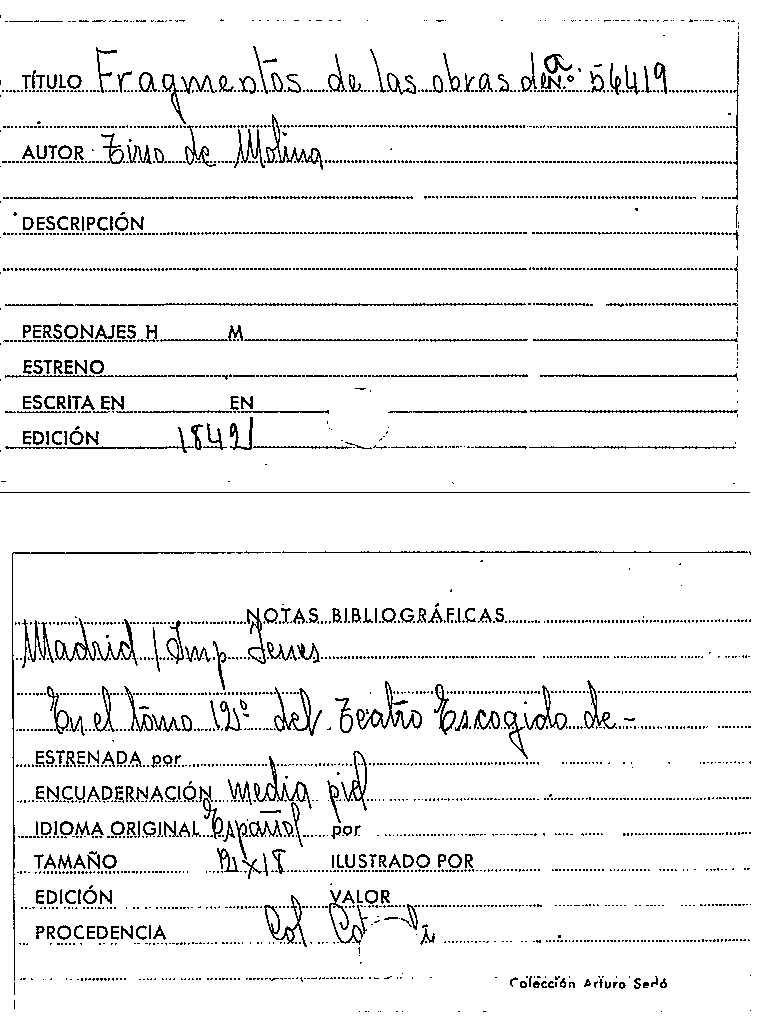 TÍTULO Fragmentos de las obras de N.º 56419
AUTOR Tirso de Molina
DESCRIPCIÓN
PERSONAJES H M
ESTRENO
ESCRITA EN EN
EDICIÓN 1849
NOTAS BIBLIOGRÁFICAS
Madrid / Imp Yenes
En el tomo 12º del Teatro Escogido de-
ESTRENADA por
ENCUADERNACIÓN media piel
IDIOMA ORIGINAL Español por
TAMAÑO 12x18 ILUSTRADO POR
EDICIÓN VALOR
PROCEDENCIA Col
Colección Arturo Sedó